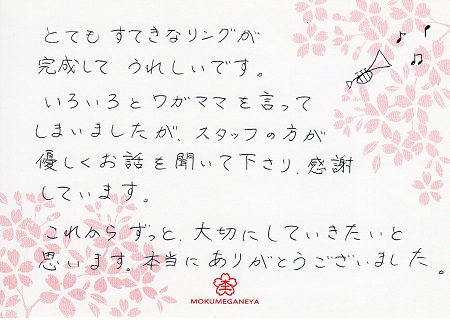 とても すてきなリングが
完成して うれしいです。
いろいろとワガママを言って
しまいましたが、スタッフの方が
優しくお話を聞いて下さり、感謝
しています。
これからずっと、大切にしていきたいと
思います。本当にありがとうございました。
MOKUMEGANEYA